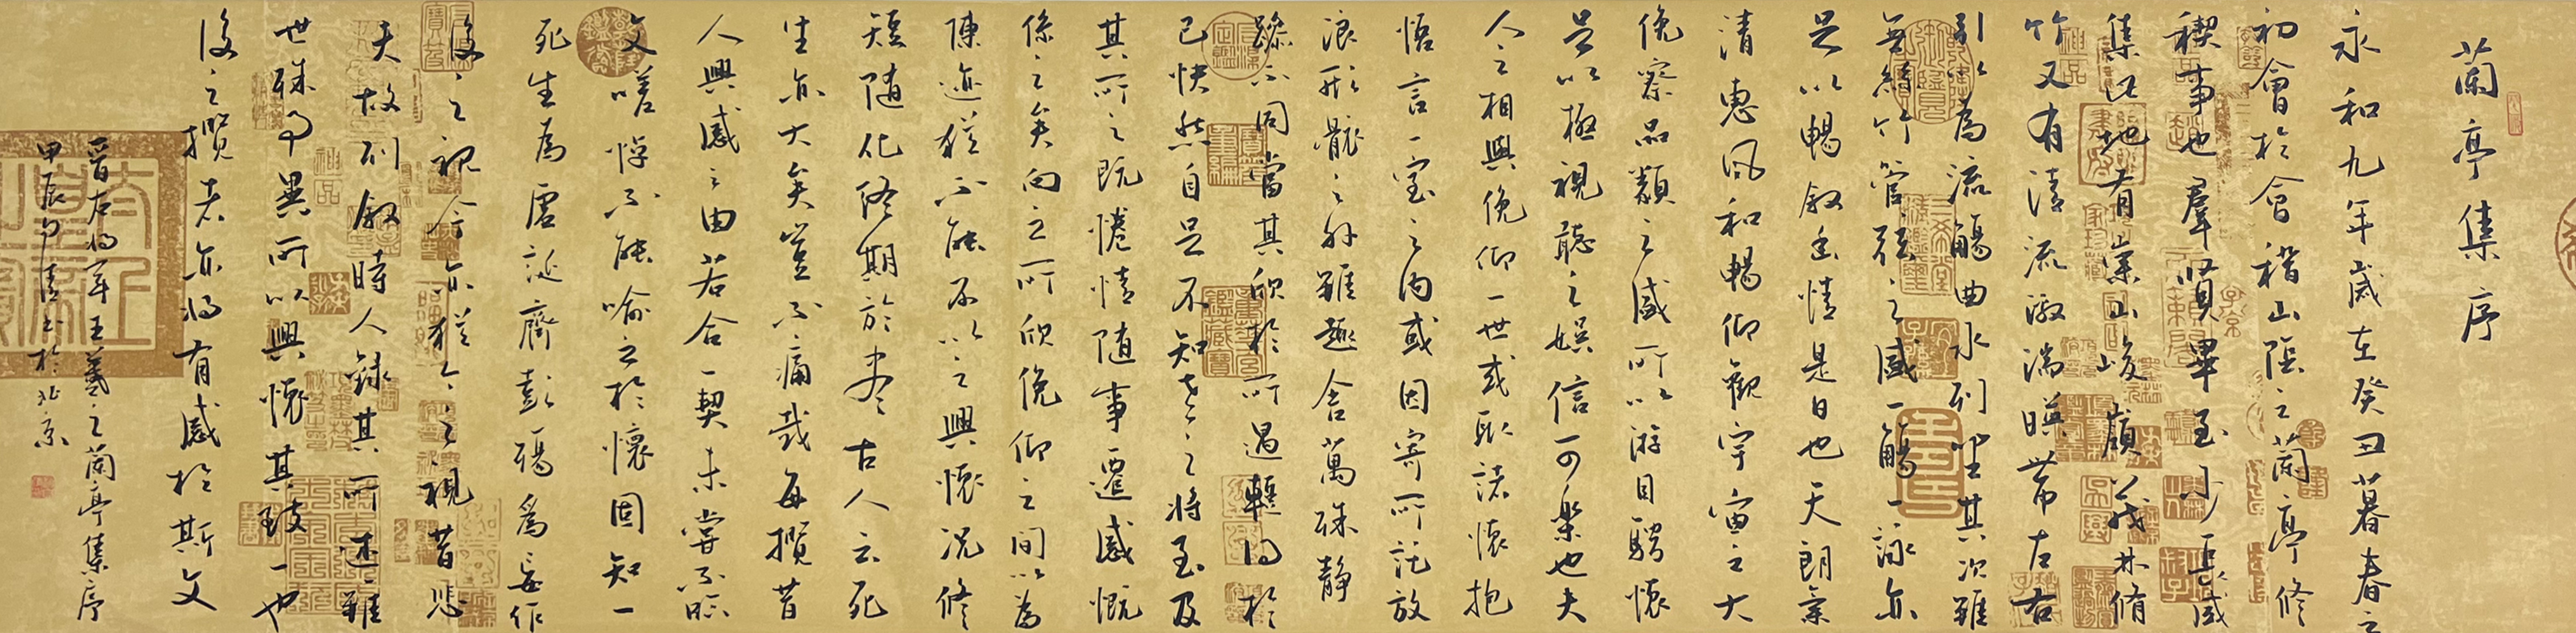 蘭亭集序
永和九年歲在癸丑暮春之
初會於會稽山陰之蘭亭修
禊事也羣賢畢至少長咸
集此地有崇山峻嶺茂林脩
竹又有清流激湍暎帶左右
引以為流觴曲水列坐其次雖
無絲竹管弦之盛一觴一詠亦
足以暢敘幽情是日也天朗氣
清惠風和暢仰觀宇宙之大
俛察品類之盛所以游目騁懷
足以極視聽之娛信可樂也夫
人之相與俛仰一世或取諸懷抱
悟言一室之內或因寄所託放
浪形骸之外雖趣舍萬殊静
躁不同當其欣於所遇蹔得於
己快然自足不知老之將至及
其所之既惓情隨事遷感慨
係之矣向之所欣俛仰之間以為
陳迹猶不能不以之興懷況脩
短隨化終期於盡古人云死
生亦大矣豈不痛哉每攬昔
人興感之由若合一契未嘗不臨
文嗟悼不能喻之於懷固知一
死生為虛誕齊彭殤為妄作
後之視今亦猶今之視昔悲
夫故列敘時人錄其所述雖
世殊事異所以興懷其致一也
後之攬者亦將有感於斯文
晉右將軍王羲之蘭亭集序
甲辰書於北京